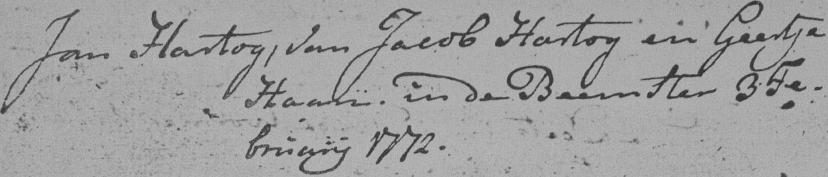 Jan Hartog, van Jacob Hartog en Geertje
Haan. in de Beemster 3 Fe.
bruarij 1772.